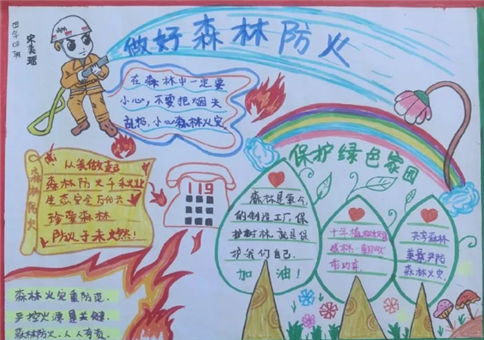 做好森林防火
在森林中一定要
小心,不要把烟头
乱扔,小心森林火灾
从我做起
森林防火千秋业
生态安全万代兴
珍爱森林
防火于未燃!
森林防火
119
保护绿色家园
森林是氧气
的制造工厂,保
护树林就是保
护我们自己.
加油!
十年植树
毁林一
森林火灾
森林火灾重防范.
严控火源是关键.
森林防火,人人有责.